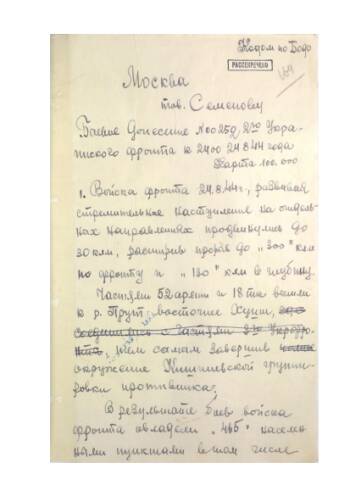 Кодом по Бодо
РАССЕКРЕЧЕНО
169
Москва
тов. Семенову
Боевое донесение № 00250 2го Укра-
инского фронта к 24 00 24.8.44 года
Карта 100.000
1. Войска фронта 24.8.44г., развивая
стремительное наступление на отдель-
ных направлениях продвинулись до
30 клм, расширив прорыв до „300" клм
по фронту и „130" клм в глубину
Частями 52 армии и 18 тк вышли
к р. Прут восточнее Хуши,
соединились с частями 3го Украфро-
нта, чем самым завершив
окружение Кишиневской группи-
ровки противника.
В результате боев войска
фронта овладели „465" населен-
ными пунктами в том числе